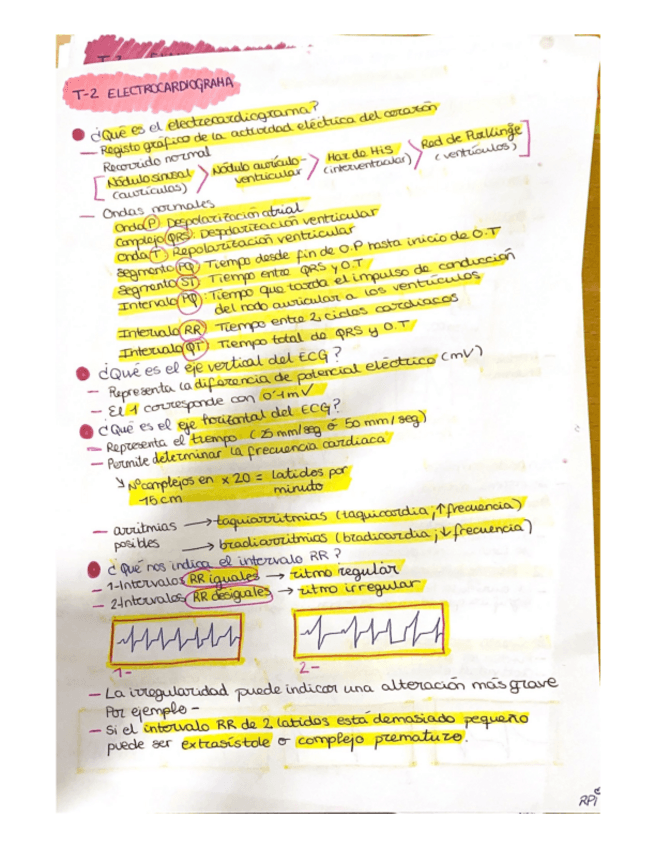 T-2 ELECTROCARDIOGRAMA
¿Qué es el electrocardiograma?
— Registo gráfico de la actividad eléctrica del corazón
Recorrido normal
[Nódulo sinusal > Nódulo aurículo- > Haz de His > Red de Purkinge]
(aurículas) ventricular (interventricular) (ventrículos)
— Ondas normales
Onda P: Despolarización atrial
Complejo QRS: Despolarización ventricular
Onda T: Repolarización ventricular
Segmento PQ: Tiempo desde fin de O.P hasta inicio de O.T
Segmento ST: Tiempo entre QRS y O.T
Intervalo PQ: Tiempo que tarda el impulso de conducción
del nodo auricular a los ventrículos
Intervalo RR: Tiempo entre 2 ciclos cardiacos
Intervalo QT: Tiempo total de QRS y O.T
¿Qué es el eje vertical del ECG?
— Representa la diferencia de potencial eléctrico (mV)
— El 1 corresponde con 0'1mV
¿Qué es el eje horizontal del ECG?
— Representa el tiempo (25 mm/seg ó 50 mm/seg)
— Permite determinar la frecuencia cardiaca
↳ Nº complejos en x 20 = latidos por
15cm minuto
— arritmias → taquiarritmias (taquicardia; ↑ frecuencia)
posibles → bradiarritmias (bradicardia; ↓ frecuencia)
¿Qué nos indica el intervalo RR?
— 1-Intervalos RR iguales → ritmo regular
— 2-Intervalos RR desiguales → ritmo irregular
1- 2-
— La irregularidad puede indicar una alteración más grave
Por ejemplo -
— Si el intervalo RR de 2 latidos está demasiado pequeño
puede ser extrasístole o complejo prematuro.